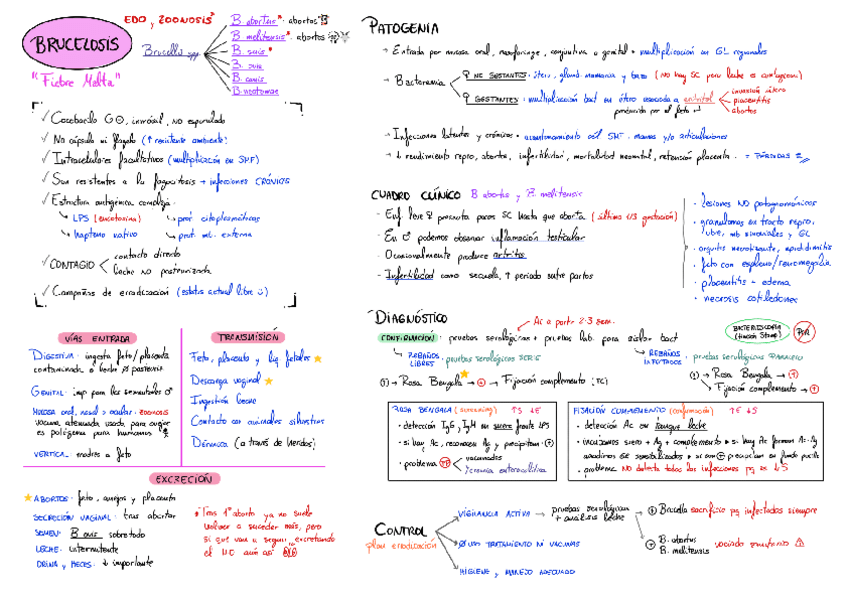 BRUCELOSIS
"Fiebre Malta"
EDO y ZOONOSIS
Brucella spp
B. abortus · abortos
B. melitensis · abortos
B. suis
B. ovis
B. canis
B. neotomae
✓ Cocobacilo G⊖, inmóvil, no esporulado
✓ No cápsula ni flagelo (↑ resistente ambiente)
✓ Intracelulares facultativos (multiplicación en SMF)
✓ Son resistentes a la fagocitosis → infecciones CRÓNICAS
✓ Estructura antigénica compleja:
↳ LPS (endotoxina) ↳ prot citoplasmáticas
↳ Hapteno nativo ↳ prot. mb. externa
✓ CONTAGIO < contacto directo
leche no pasteurizada
✓ Campañas de erradicación (estatus actual libre)
VÍAS ENTRADA
DIGESTIVA: ingesta feto/placenta
contaminada o leche no pasteriz
GENITAL:
MUCOSA oral, nasal y ocular · ZOONOSIS
vacuna atenuada usada para ovejas
es patógena para humanos
VERTICAL: madres a feto
TRANSMISIÓN
Feto, placenta y líq fetales
Descarga vaginal
Ingestión leche
Contacto con animales silvestres
Dérmica (a través de heridas)
EXCRECIÓN
ABORTOS: feto, anejos y placenta
SECRECIÓN VAGINAL: tras abortar
SEMEN: B ovis sobretodo
LECHE: intermitente
ORINA y HECES: ↓ importante
* Tras 1º aborto ya no suele
volver a suceder más, pero
sí que van a seguir excretando
el MO aún así
PATOGENIA
→ Entrada por mucosa oral, nasofaringe, conjuntiva o genital → multiplicación en GL regionales
→ Bacteriemia
♀ NO GESTANTES: útero, gland. mamaria y bazo (No hay SC pero leche es contagiosa)
♀ GESTANTES: multiplicación bact en útero asociada a eritritol
producido por el feto
invasión útero
placentitis
abortos
→ Infecciones latentes y crónicas → acantonamiento cél SMF: mamas y/o articulaciones
→ ↓ rendimiento repro, abortos, infertilidad, mortalidad neonatal, retención placenta = PÉRDIDAS
CUADRO CLÍNICO B abortus y B. melitensis
- Enf. leve ♀ presenta pocos SC hasta que aborta (último 1/3 gestación)
- En ♂ podemos observar inflamación testicular
- Ocasionalmente produce artritis
- Infertilidad como secuela, ↑ periodo entre partos
· lesiones NO patognomónicas
· granulomas en tracto repro,
ubre, mb sinoviales y GL
· orquitis necrotizante, epididimitis
· feto con espleno/
· placentitis + edema
· necrosis cotiledones
DIAGNÓSTICO
Ac a partir 2-3 sem.
CONFIRMACIÓN: pruebas serológicas + pruebas lab. para aislar bact
BACTERIOSCOPIA
PCR
REBAÑOS LIBRES: pruebas serológicas SERIE
① → Rosa Bengala → ⊕ → Fijación complemento (FC)
REBAÑOS INFECTADOS: pruebas serológicas PARALELO
① → Rosa Bengala → ⊕
↘ Fijación complemento → ⊕
ROSA BENGALA (screening) ↑S ↓E
· detección IgG, IgM en suero frente LPS
· si hay Ac, reconocen Ag y precipitan ⊕
· problema FP < vacunados
Yersinia enterocolitica
FIJACIÓN COMPLEMENTO (confirmación) ↑E ↓S
· detección Ac en
· incubamos suero + Ag + complemento → si hay Ac forman Ac-Ag
añadimos GR sensibilizados → si son ⊕ precipitan en fondo pocillo
· problema: NO detecta todas las infecciones pq es ↓S
CONTROL
plan erradicación
VIGILANCIA ACTIVA → pruebas serológicas
+ análisis leche
⊕ Brucella sacrificio pq infectados siempre
⊕ B. abortus
B. melitensis vaciado sanitario
Ø USO TRATAMIENTO NI VACUNAS
HIGIENE y MANEJO ADECUADO